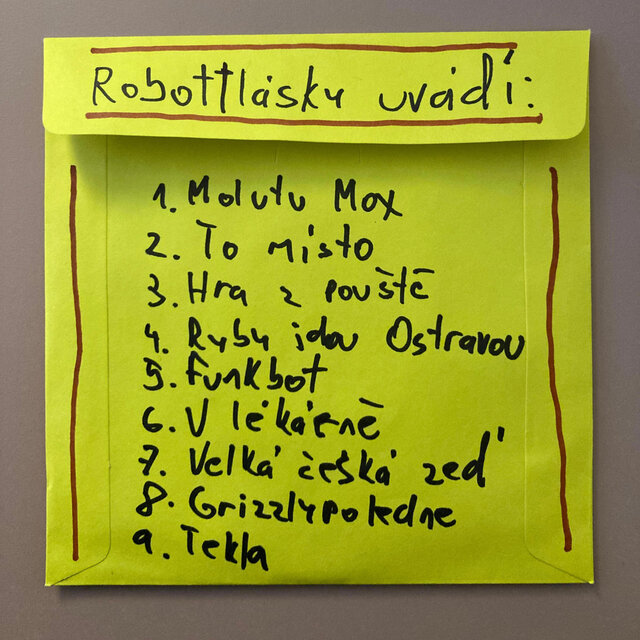 Robottlásky uvádí:
1. Molutu Mox
2. To místo
3. Hra z pouště
4. Ryby jdou Ostravou
5. Funkbot
6. V lékárně
7. Velká česká zeď
8. Grizzlypoledne
9. Tekla